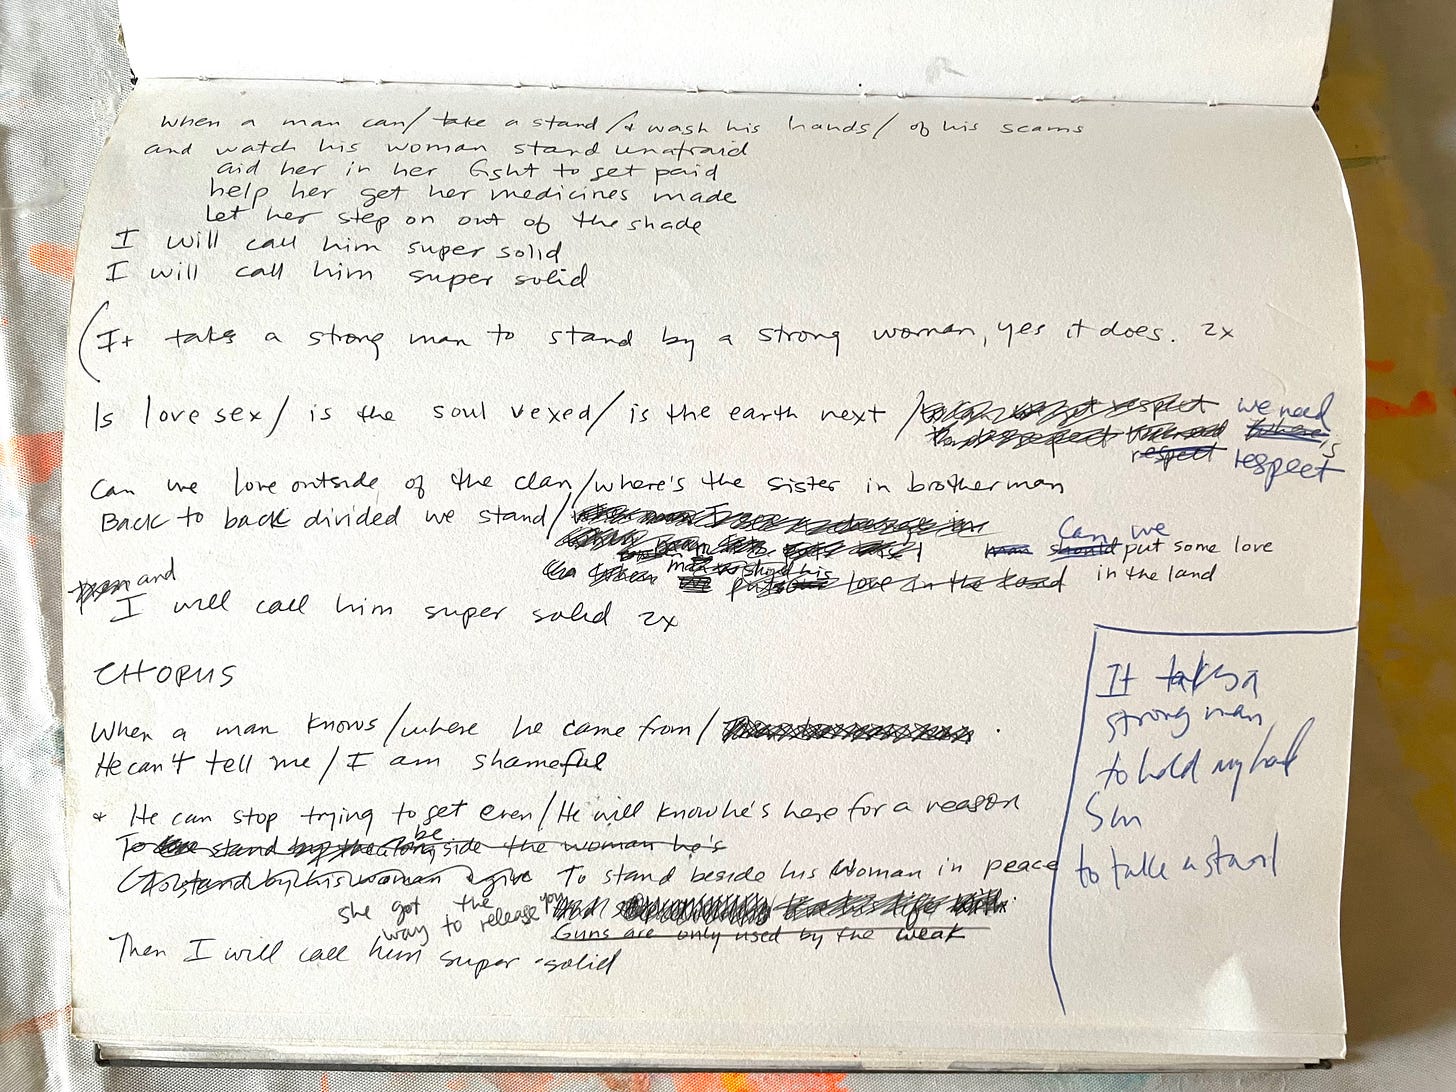 When a man can/ take a stand/& wash his hands/ of his scams
and watch his woman stand unafraid
aid her in her fight to get paid
help her get her medicines made
let her step on out of the shade
I will call him super solid
I will call him super solid
(It takes a strong man to stand by a strong woman, yes it does. 2x
Is love sex/ is the soul vexed/ is the earth next / we need
respect respect
Can we love outside of the clan/where's the sister in brotherman
Back to back divided we stand/
Can we
should put some love
man should his
love in the land in the land
and
I will call him super solid 2x
CHORUS
When a man knows/where he came from/
He can't tell me/I am shameful
& He can stop trying to get even/He will know he's here for a reason
be
To stand alongside the woman he's
To stand by his woman & give To stand beside his woman in peace
she got the
way to release you
Guns are only used by the weak
Then I will call him super solid
It takes a
strong man
to hold my hand
to take a stand